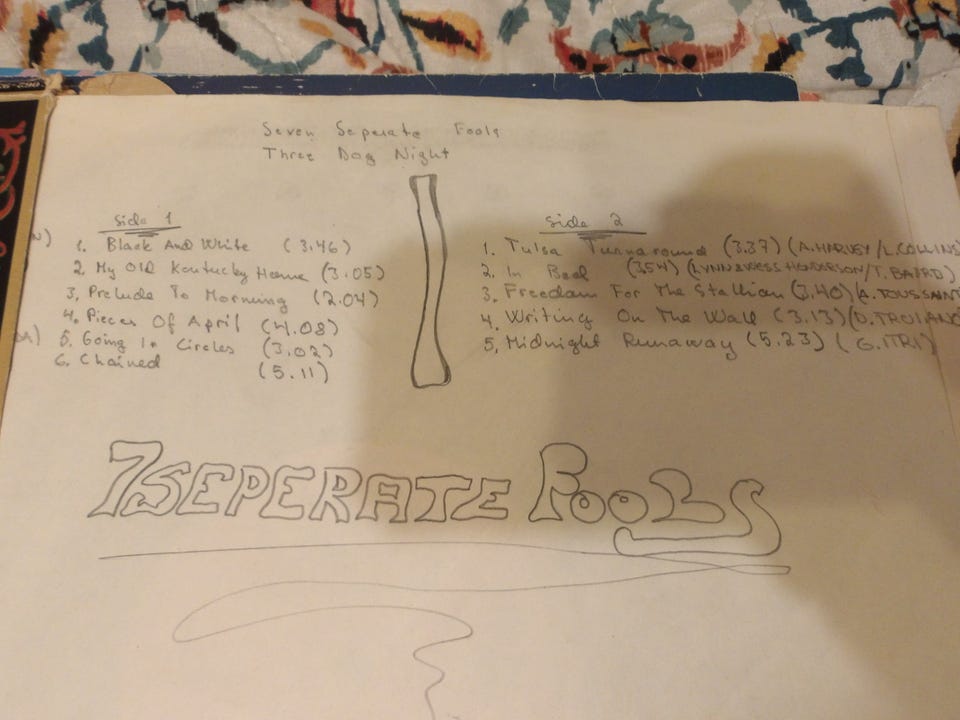 Seven Seperate Fools
Three Dog Night
Side 1
1. Black And White (3.46)
2. My Old Kentucky Home (3.05)
3. Prelude To Morning (2.04)
4. Pieces Of April (4.08)
5. Going In Circles (3.02)
6. Chained (5.11)
Side 2
1. Tulsa Turnaround (3.37) (A.HARVEY/L.COLLINS)
2. In Bed (354) (LYNN&WESS HENDERSON/T.BAIRD)
3. Freedom For The Stallion (3.40) (A.TOUSSAINT
4. Writing On The Wall (3.13) (D.TROIANO
5. Midnight Runaway (5.23) (G.ITRI)
7 SEPERATE FOOLS